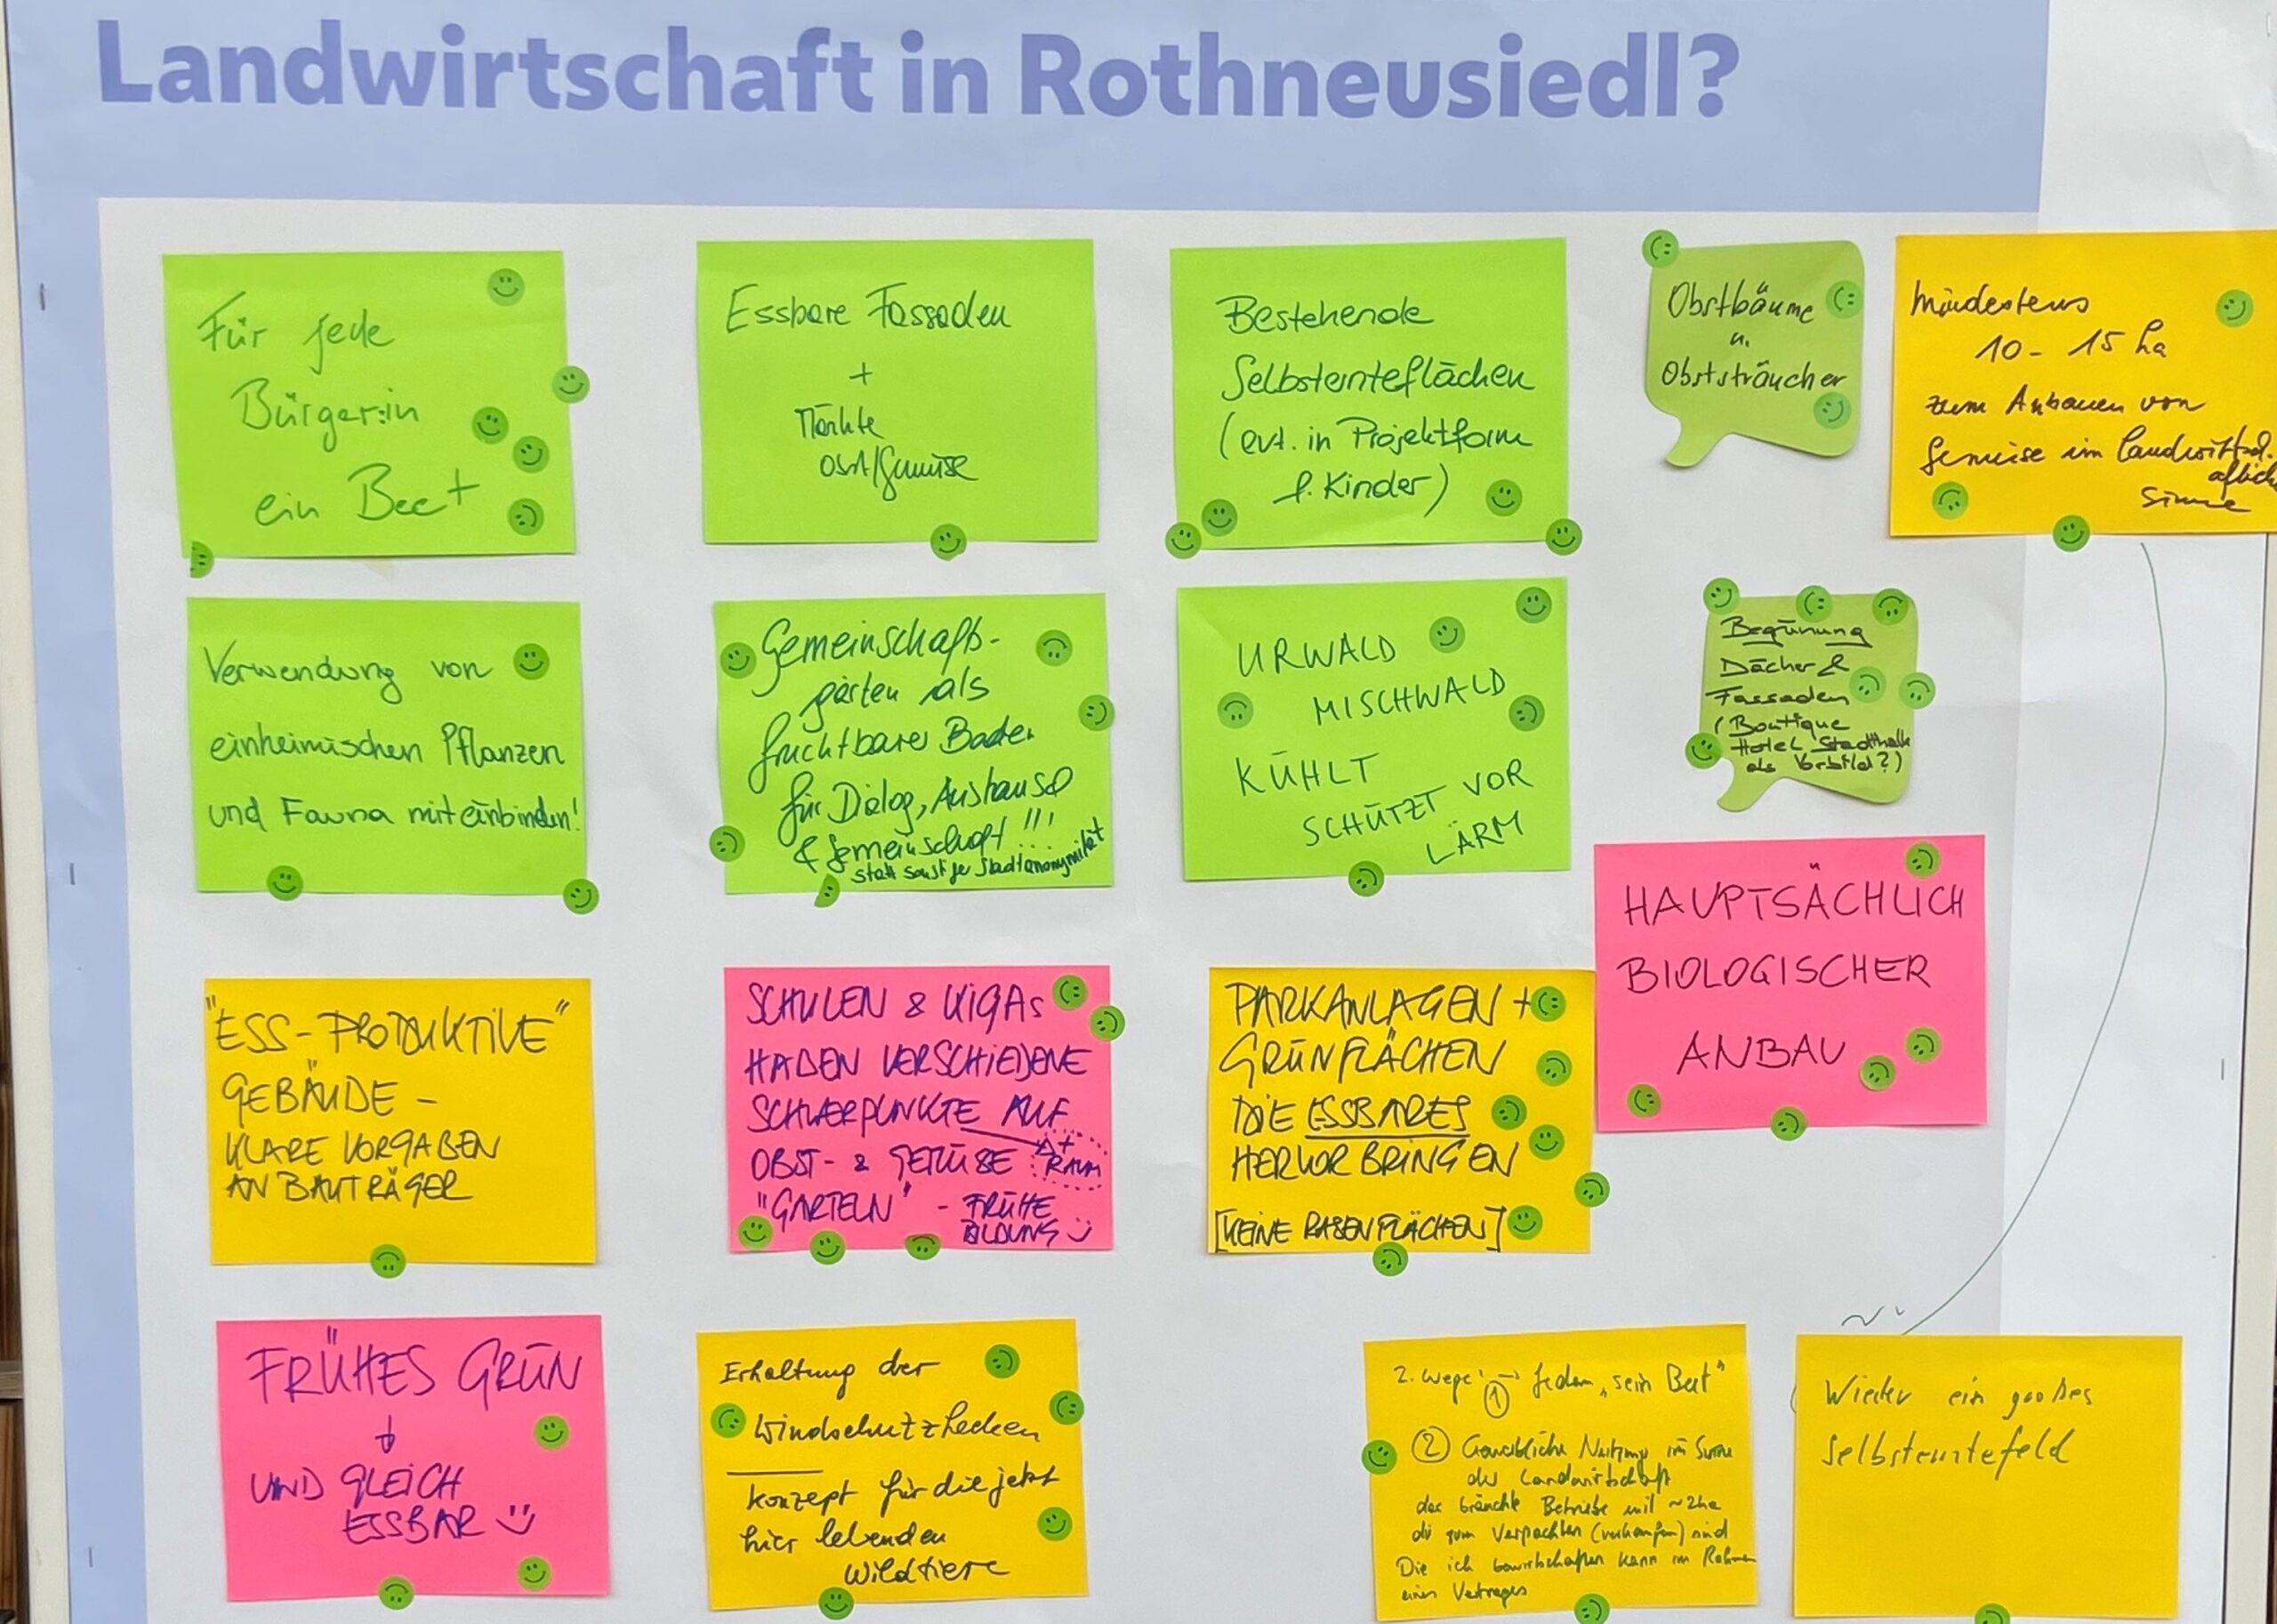 Landwirtschaft in Rothneusiedl?
Für jede
Bürger:in
ein Beet
Essbare Fassaden
+
Märkte
Obst/Gemüse
Bestehende
Selbsternteflächen
(evt. in Projektform
f. Kinder)
Obstbäume
u.
Obststräucher
Mindestens
10 - 15 ha
zum Anbauen von
Gemüse im landwirtsch.
aflich
Sinne
Verwendung von
einheimischen Pflanzen
und Fauna miteinbinden!
Gemeinschafts-
gärten als
fruchtbarer Boden
für Dialog, Austausch
& Gemeinschaft!!!
statt sonstiger Stadtanonymität
URWALD
MISCHWALD
KÜHLT
SCHÜTZT VOR
LÄRM
Begrünung
Dächer &
Fassaden
(Boutique
Hotel Stadthalle
als Vorbild?)
HAUPTSÄCHLICH
BIOLOGISCHER
ANBAU
"ESS-PRODUKTIVE"
GEBÄUDE -
KLARE VORGABEN
AN BAUTRÄGER
SCHULEN & KIGAs
HABEN VERSCHIEDENE
SCHWERPUNKTE AUF
OBST- & GEMÜSE + RAUM
"GARTELN" - FRÜHE
BILDUNG
PARKANLAGEN +
GRÜNFLÄCHEN
DIE ESSBARES
HERVORBRINGEN
[KEINE RASENFLÄCHEN]
FRÜHES GRÜN
UND GLEICH
ESSBAR
Erhaltung der
Windschutzhecken
Konzept für die jetzt
hier lebenden
Wildtiere
2. Wege: ① → Jedem „sein Beet"
② Gewerbliche Nutzung im Sinne
der Landwirtschaft
das bräuchte Betriebe mit ~2ha
die zum Verpachten (verkaufen) sind
Die ich bewirtschaften kann im Rahmen
eines Vertrages
Wieder ein großes
Selbsterntefeld